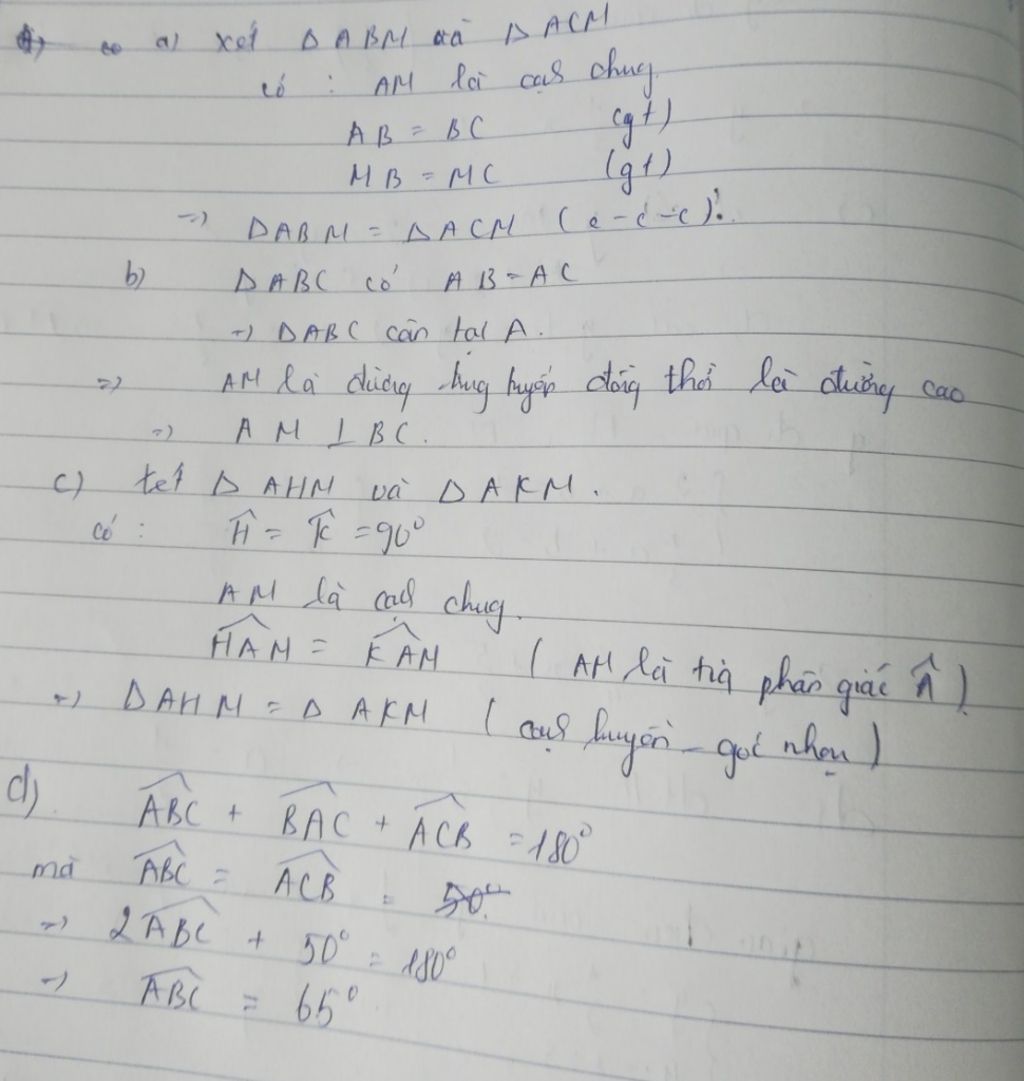 a) xét Δ ABM và Δ ACM
có : AM là cạh chug
AB = BC (gt)
MB = MC (gt)
=> ΔABM = ΔACM (c-c-c).
b) ΔABC có AB = AC
=> ΔABC cân tại A.
=> AM là đường trug tuyến đồng thời là đường cao
=> AM ⊥ BC.
c) xét Δ AHM và Δ AKM.
có : Ĥ = K̂ = 90°
AM là cạh chug.
HAM̂ = KAM̂ ( AM là tia phân giác Â )
=> ΔAHM = Δ AKM ( cạh huyền - góc nhọn )
d) ABĈ + BAĈ + ACB̂ = 180°
mà ABĈ = ACB̂
=> 2ABĈ + 50° = 180°
=> ABĈ = 65°